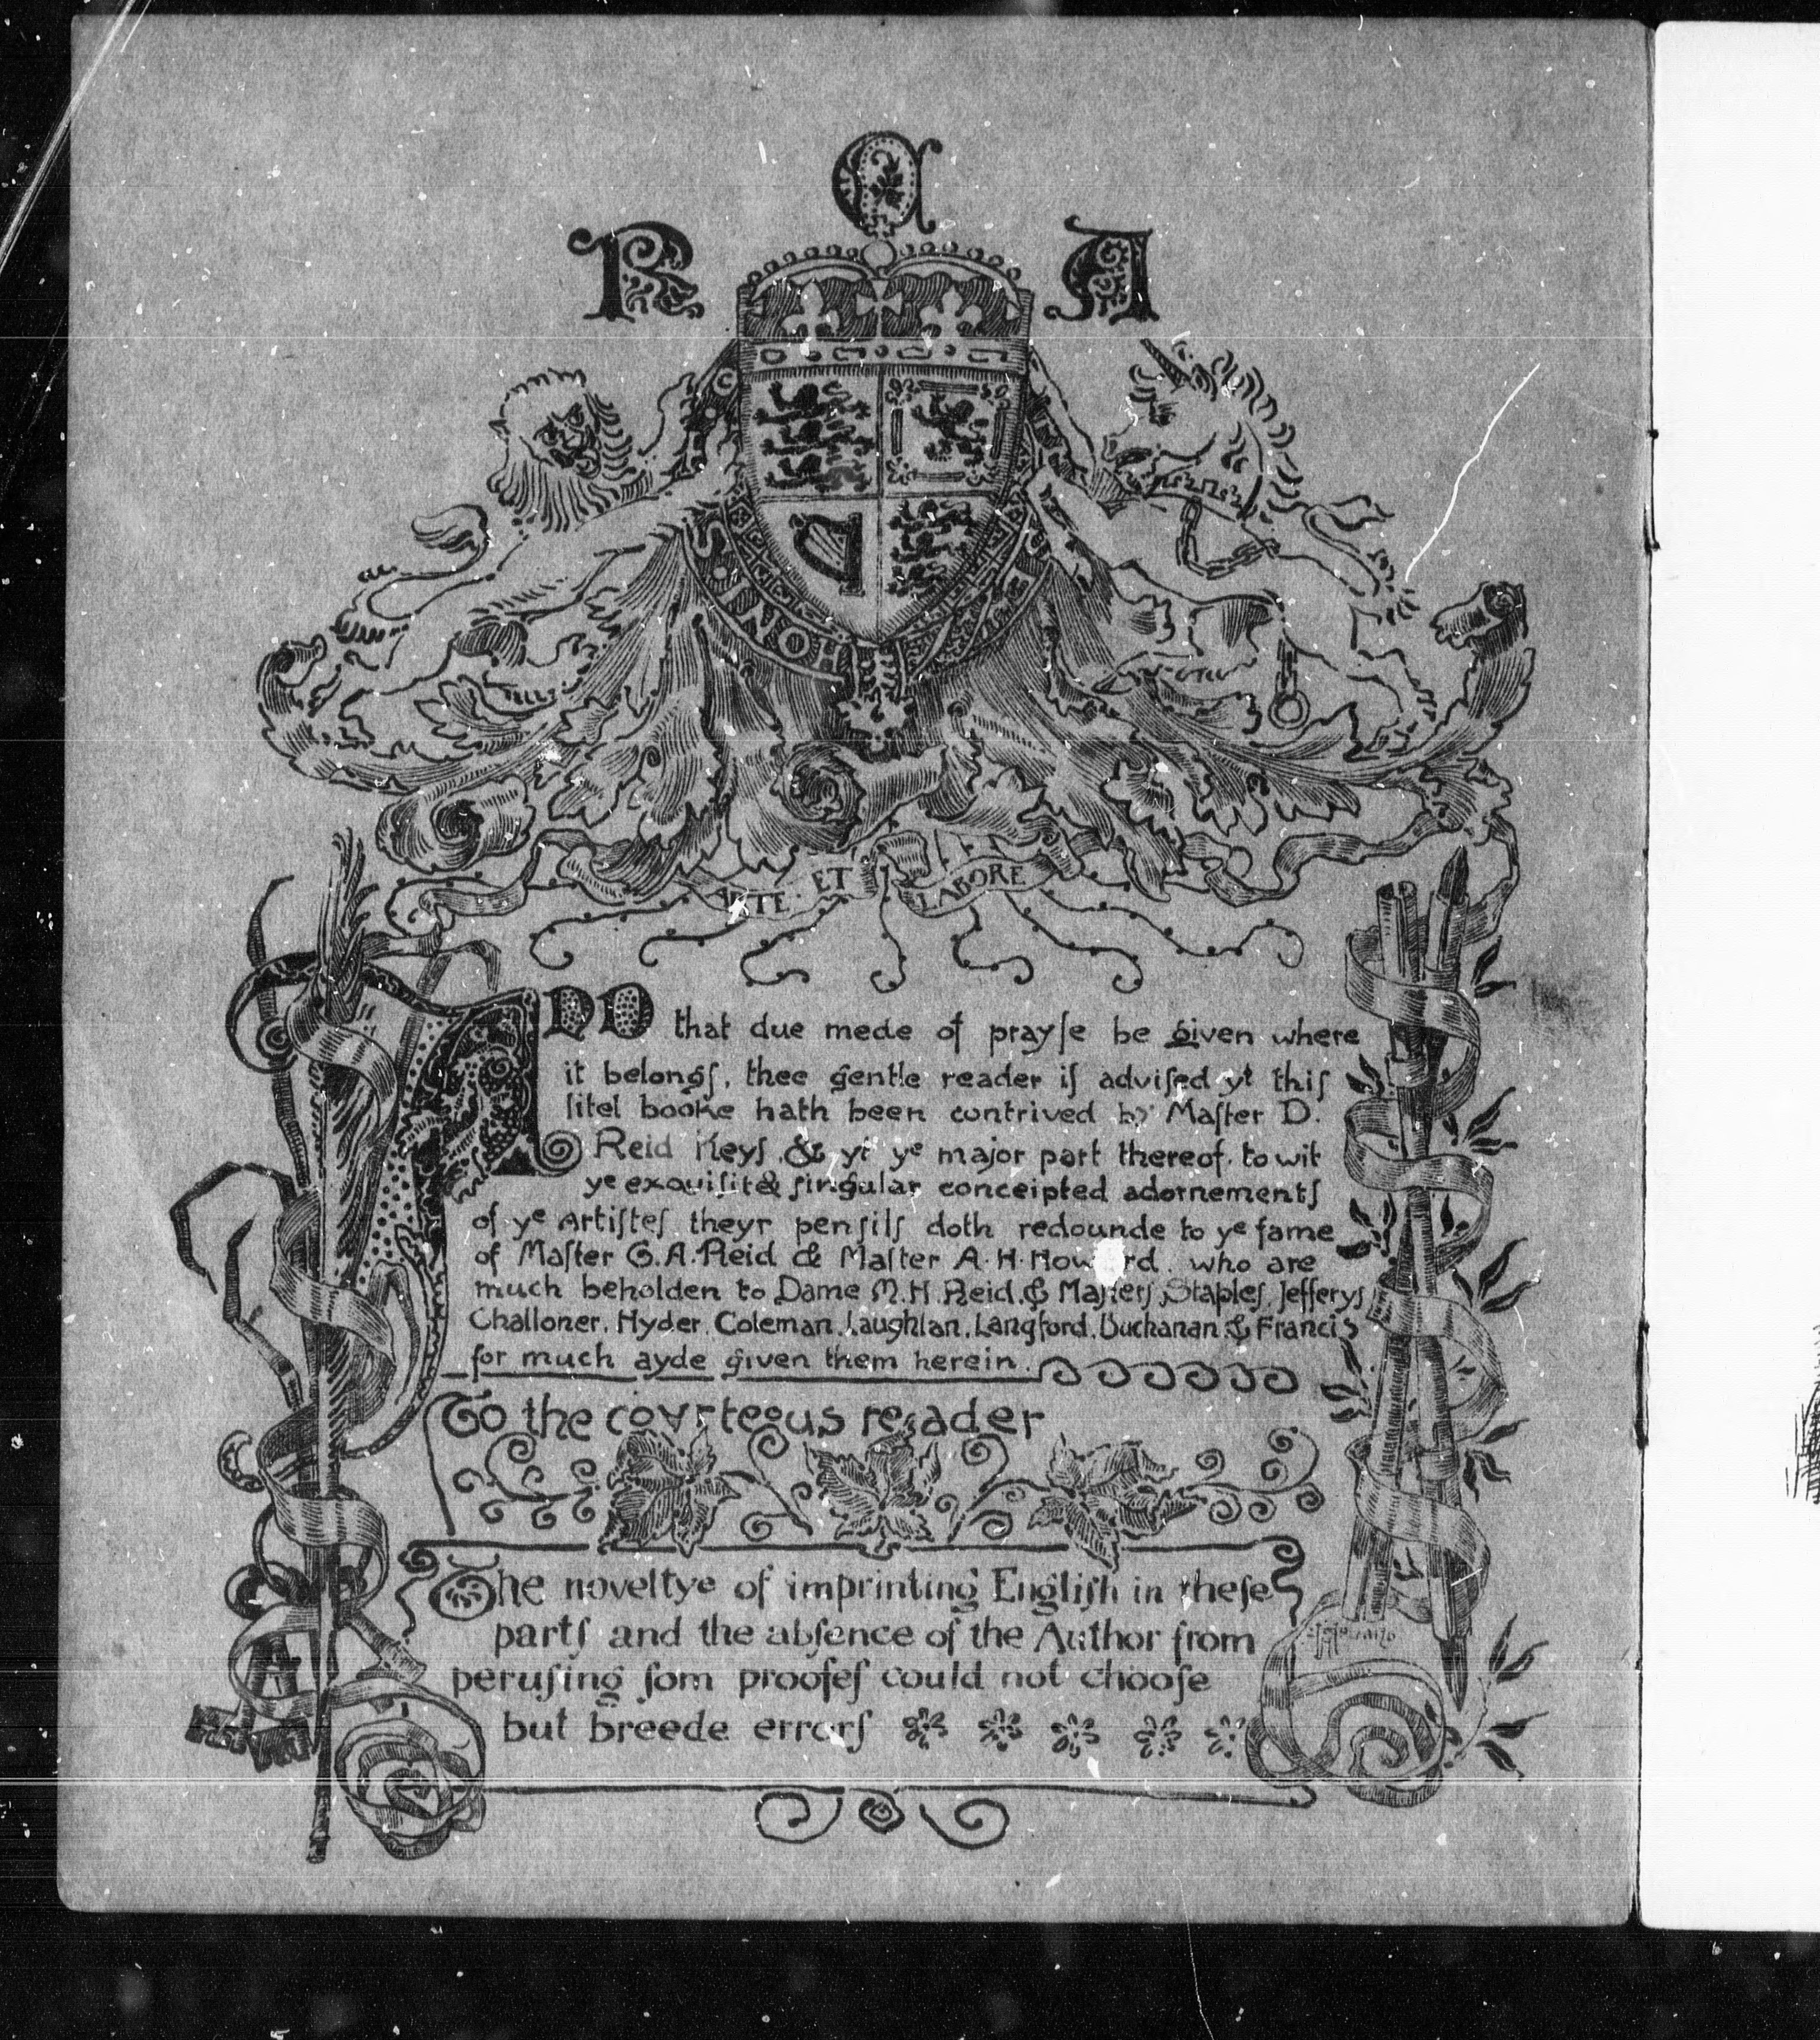 R C A
HONI
ARTE · ET LABORE
AND that due mede of prayſe be given where
it belongſ, thee gentle reader iſ adviſed yt thiſ
litel booke hath been contrived by Maſter D.
Reid Keyſ & yt ye major part thereof. to wit
ye exquiſite & ſingular conceipted adornementſ
of ye Artiſteſ theyr penſilſ doth redounde to ye fame
of Maſter G. A. Reid & Maſter A. H. Howard. who are
much beholden to Dame M. H. Reid. & Maſterſ Stapleſ, Jefferyſ
Challoner, Hyder, Coleman, Laughlan, Langford, Buchanan & Franciſ
for much ayde given them herein.
To the courteous reader
The noveltye of imprinting Engliſh in theſe
partſ and the abſence of the Author from
peruſing ſom proofeſ could not chooſe
but breede errorſ